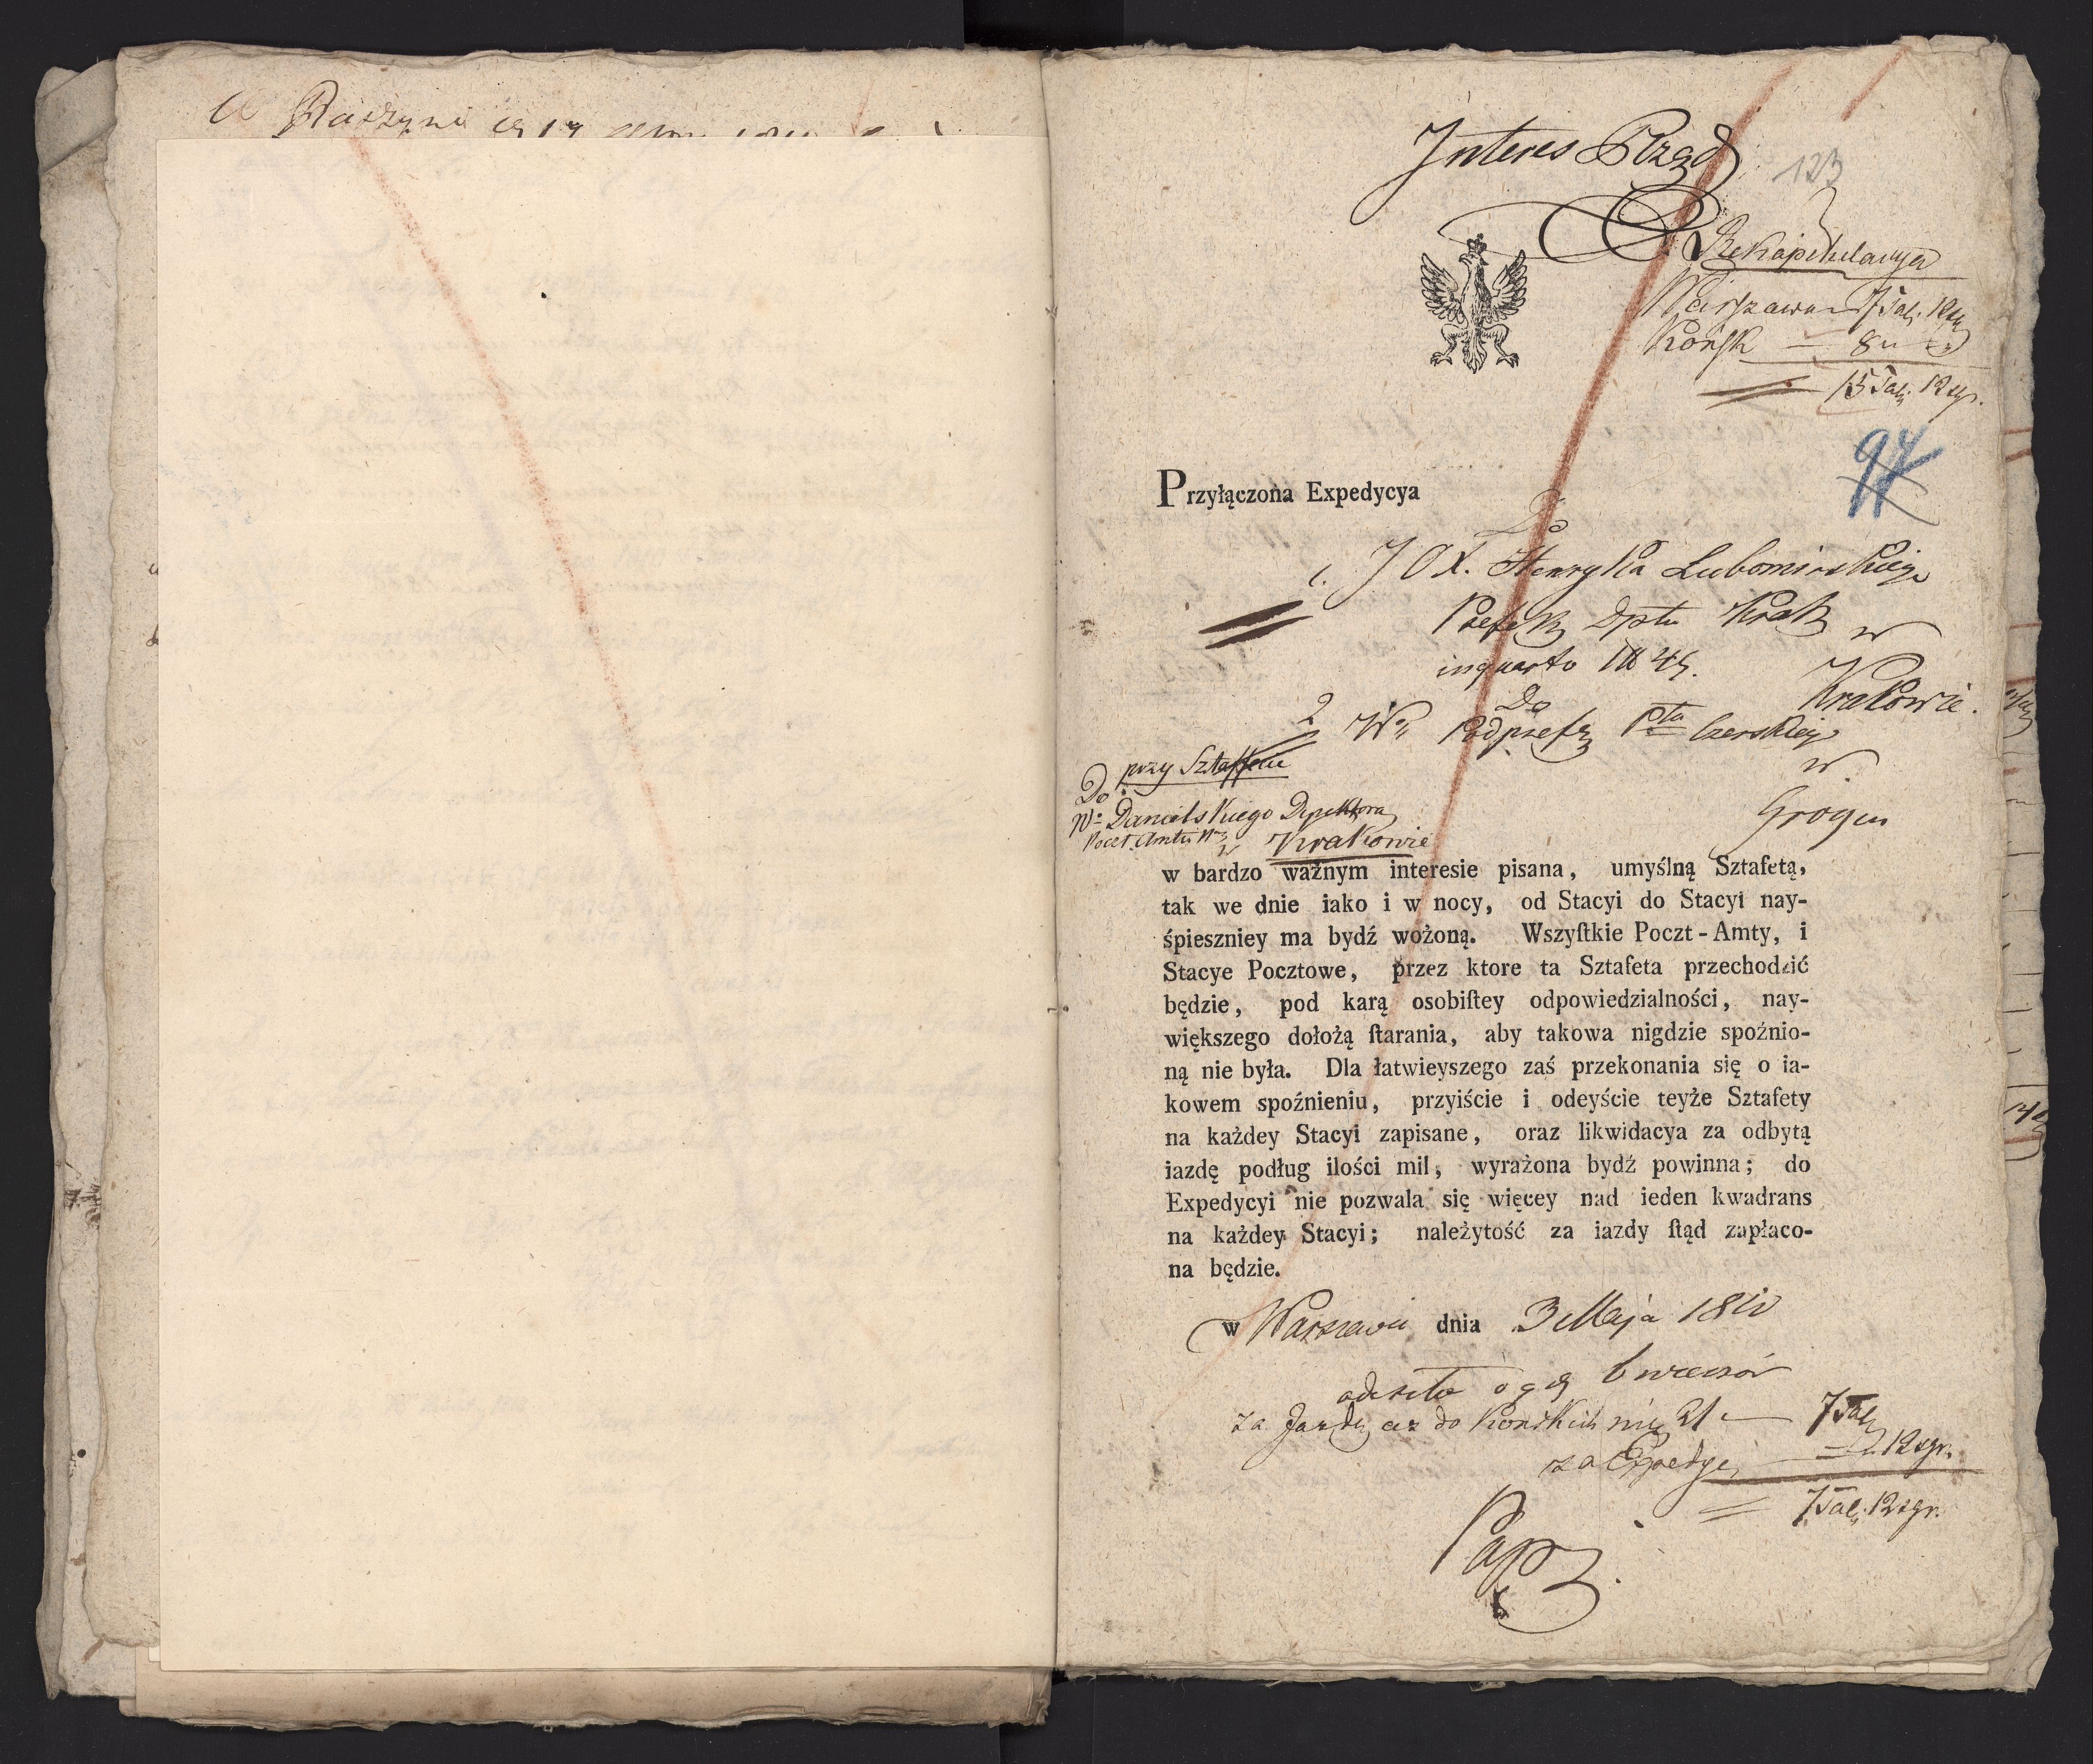 Interes Rząd
123
Rekapitulacya
Warszawa 7 Tal. 12 sgr
Końsk — 8 "
15 Tal. 12 sgr.
94
Przyłączona Expedycya
Do
1. J O X. Henryka Lubomirskiego
Prefekt Dptu Krak
w
inquarto № 45.
Krakowie.
Do
2 W. Podprefek Ptu Czerskiego
w
przy Sztaffecie
Do
Grogcu
Wo Danielskiego Dyrektora
Poczt Amtu
w Krakowie
w bardzo ważnym interesie pisana, umyślną Sztafetą,
tak we dnie iako i w nocy, od Stacyi do Stacyi nay-
śpieszniey ma bydź wożoną. Wszyſtkie Poczt-Amty, i
Stacye Pocztowe, przez ktore ta Sztafeta przechodzić
będzie, pod karą osobiſtey odpowiedzialności, nay-
większego dołożą ſtarania, aby takowa nigdzie spoźnio-
ną nie była. Dla łatwieyszego zaś przekonania się o ia-
kowem spoźnieniu, przyiście i odeyście teyże Sztafety
na każdey Stacyi zapisane, oraz likwidacya za odbytą
iazdę podług ilości mil, wyrażona bydź powinna; do
Expedycyi nie pozwala się więcey nad ieden kwadrans
na każdey Stacyi; należytość za iazdy ſtąd zapłaco-
na będzie.
w Warszawie dnia 3 Maja 1810
odeszła o g 6 wieczór
za Jazdę aż do Konskich mil 21 — 7 Tal
za Expedye — 12 sgr.
7 Tal. 12 sgr.